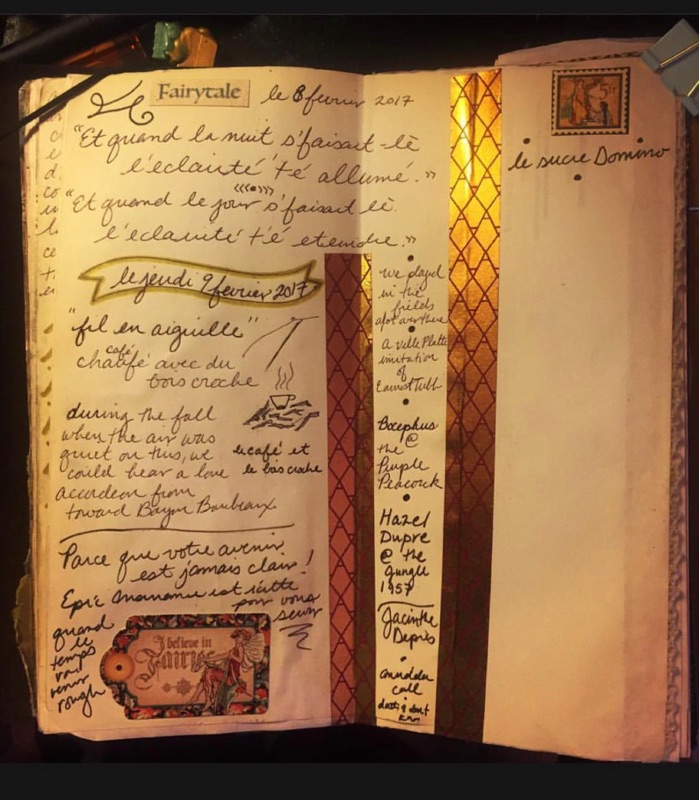 Fairytale le 8 fevrier 2017
"Et quand la nuit s'faisait-lè
l'éclairité 'té allumé."
"Et quand le jour s'faisait lè
l'éclairité t'é eteindre."
le jeudi 9 fevrier 2017
"fil en aiguille"
café
chauffé avec du
bois croche
during the fall
when the air was
quiet on this, we
could hear a lone
accordeon from
toward Bayou Boubeaux
le café et
le bois croche
Parce que votre avenir
est jamais clair!
Epic maman est
pour vous
quand
le
temps
va
venir
rough
I believe in
Fairies
we played
in the
fields
a Ville Platte
imitation
of
Earnest Tubb
Bocephus
@
the
Purple
Peacock
Hazel
Dupre
@ the
Jungle
1957
Jacinthe
Depris
call
le sucre Domino